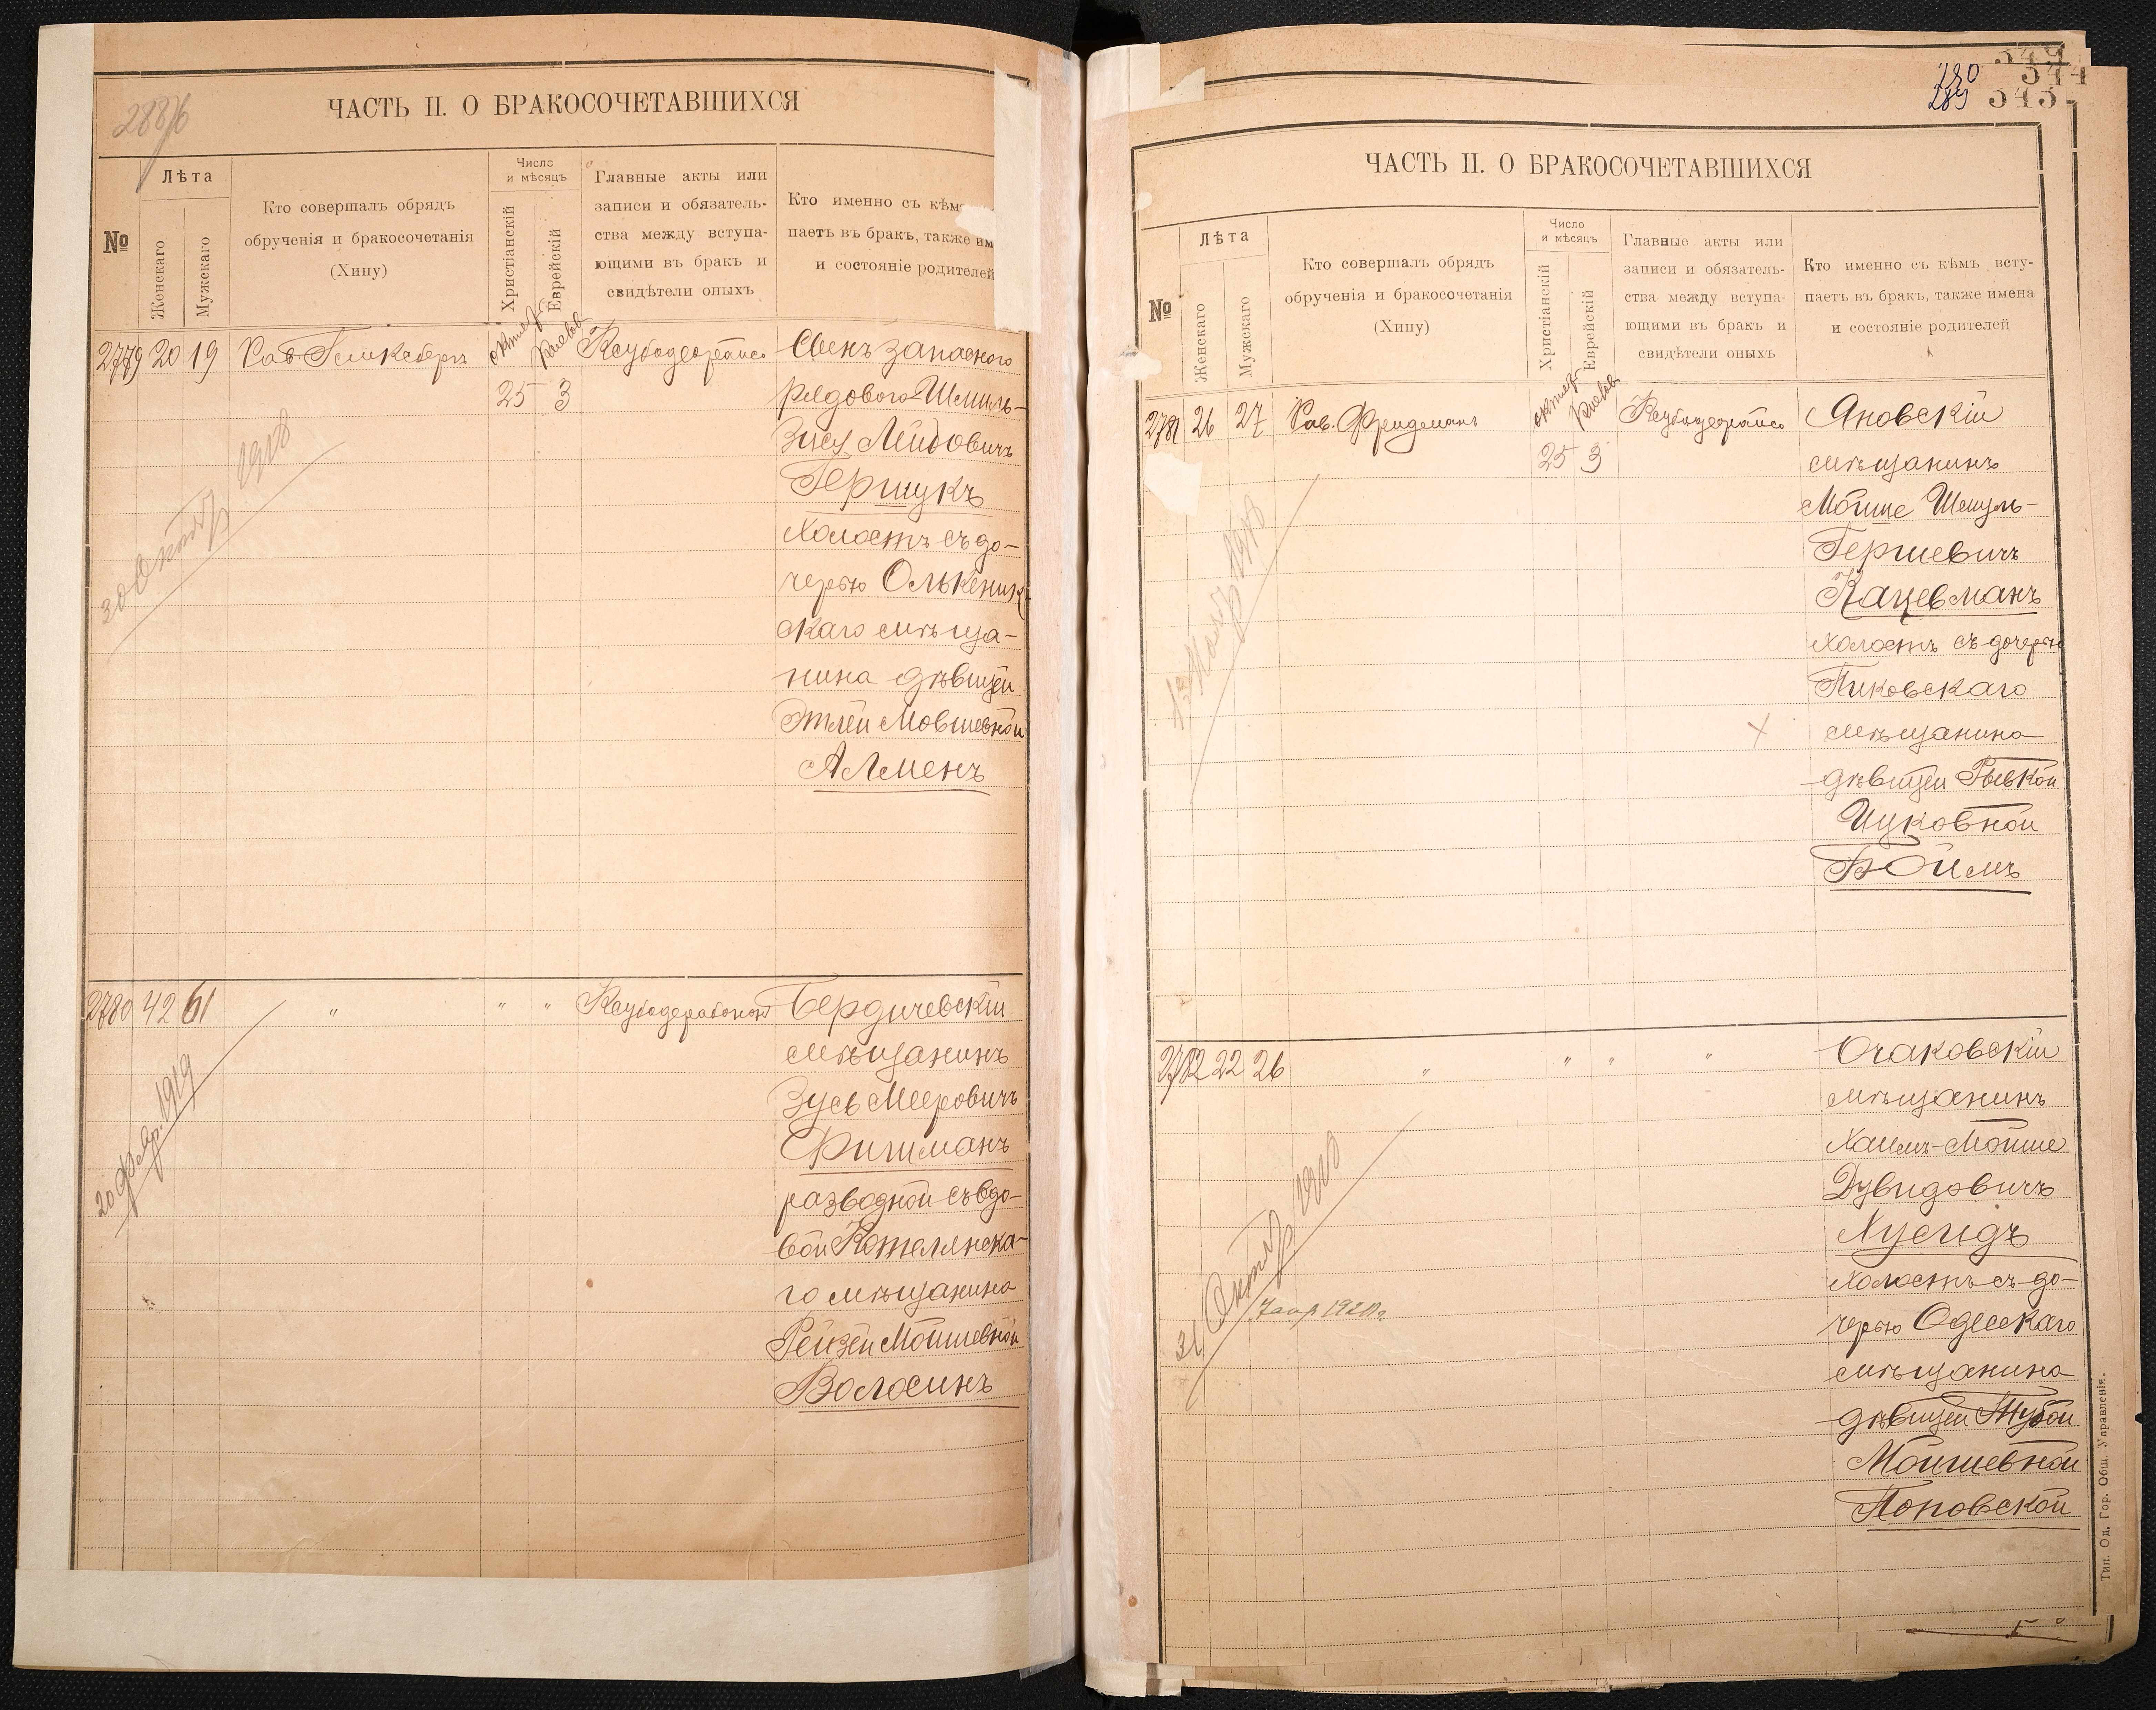 ЧАСТЬ II. О БРАКОСОЧЕТАВШИХСЯ
№
Лѣта
Женскаго
Мужскаго
Кто совершалъ обрядъ
обрученія и бракосочетанія
(Хипу)
Число
и мѣсяцъ
Христіанскій
Еврейскій
Главные акты или
записи и обязатель-
ства между вступа-
ющими въ бракъ и
свидѣтели оныхъ
Кто именно съ кѣмъ
паетъ въ бракъ, также им
и состояніе родителей
2779 20 19
25 3
Сынъ запасного
рядового Шмиль-
Зись Лейбовичъ
Гершукъ
холостъ съ до-
черью Олькеник-
скаго мѣща-
нина дѣвицей
Этлей Мовшевной
Алменъ
30 Октяб 1918
2780 42 61 " " "
Бердичевскій
мѣщанинъ
Зусь Мееровичъ
Фишманъ
разводной съ вдо-
вой Котелянска-
го мѣщанина
Рейзей Мойшевной
Волосинъ
20 Февр. 1919
280
289
344
343
ЧАСТЬ II. О БРАКОСОЧЕТАВШИХСЯ
№
Лѣта
Женскаго
Мужскаго
Кто совершалъ обрядъ
обрученія и бракосочетанія
(Хипу)
Число
и мѣсяцъ
Христіанскій
Еврейскій
Главные акты или
записи и обязатель-
ства между вступа-
ющими въ бракъ и
свидѣтели оныхъ
Кто именно съ кѣмъ всту-
паетъ въ бракъ, также имена
и состояніе родителей
2781 26 27 Рав. Фридманъ
25 3
Яновскій
мѣщанинъ
Мойше Шмуль-
Гершевичъ
Кацевманъ
холостъ съ дочерью
Пиковскаго
мѣщанина
дѣвицей Рывкой
Ицковной
Боймъ
2782 22 26 " " " "
Очаковскій
мѣщанинъ
Хаимъ-Мойше
Дувидовичъ
Хусидъ
холостъ съ до-
черью Одесскаго
мѣщанина
дѣвицей Тубой
Мойшевной
Поповской
31 Октяб 1918
7 апр 1920 г.
Тип. Од. Гор. Общ. Управленія.